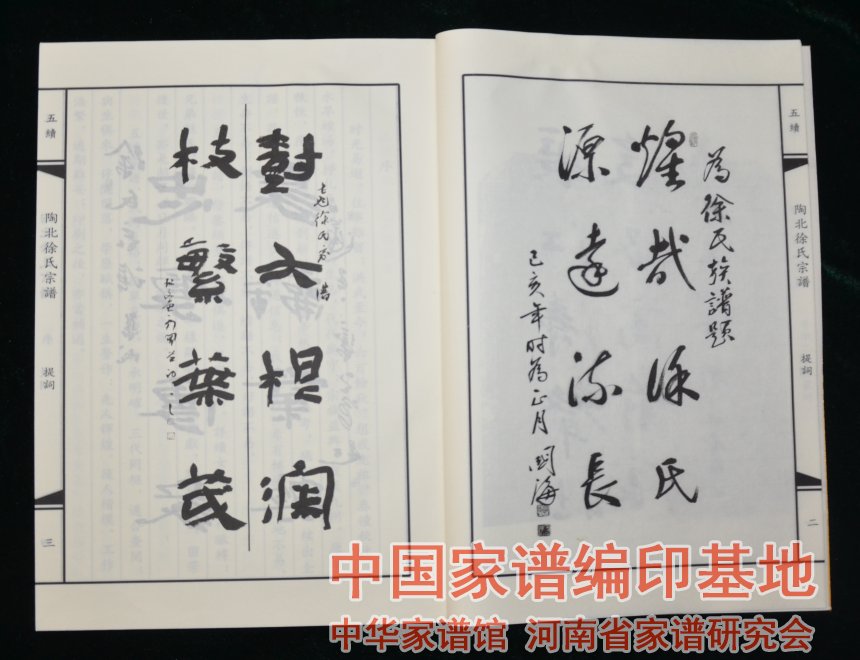 五續
陶北徐氏宗譜
提詞
二
為徐氏族譜題
煌哉徐氏
源遠流長
己亥年時為正月
五續
陶北徐氏宗譜
提詞
三
樹大根深
枝繁葉茂
中国家谱编印基地
中华家谱馆 河南省家谱研究会